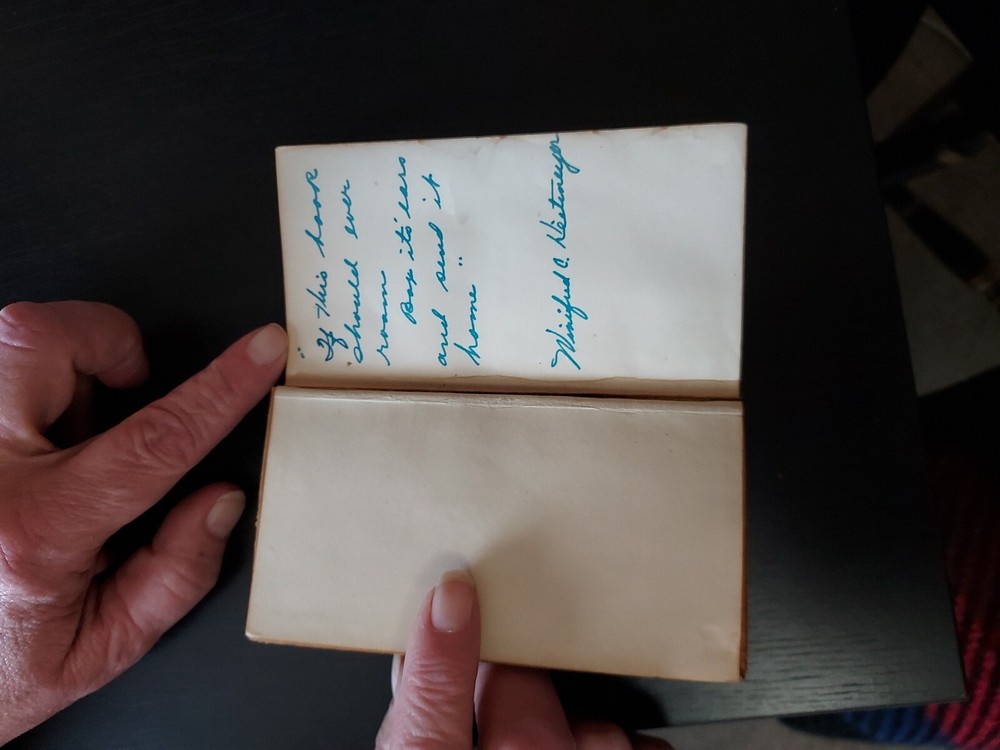 "If this book
should ever
room
Box it's ears
and send it
home"
Winifred C. Niestmeyer